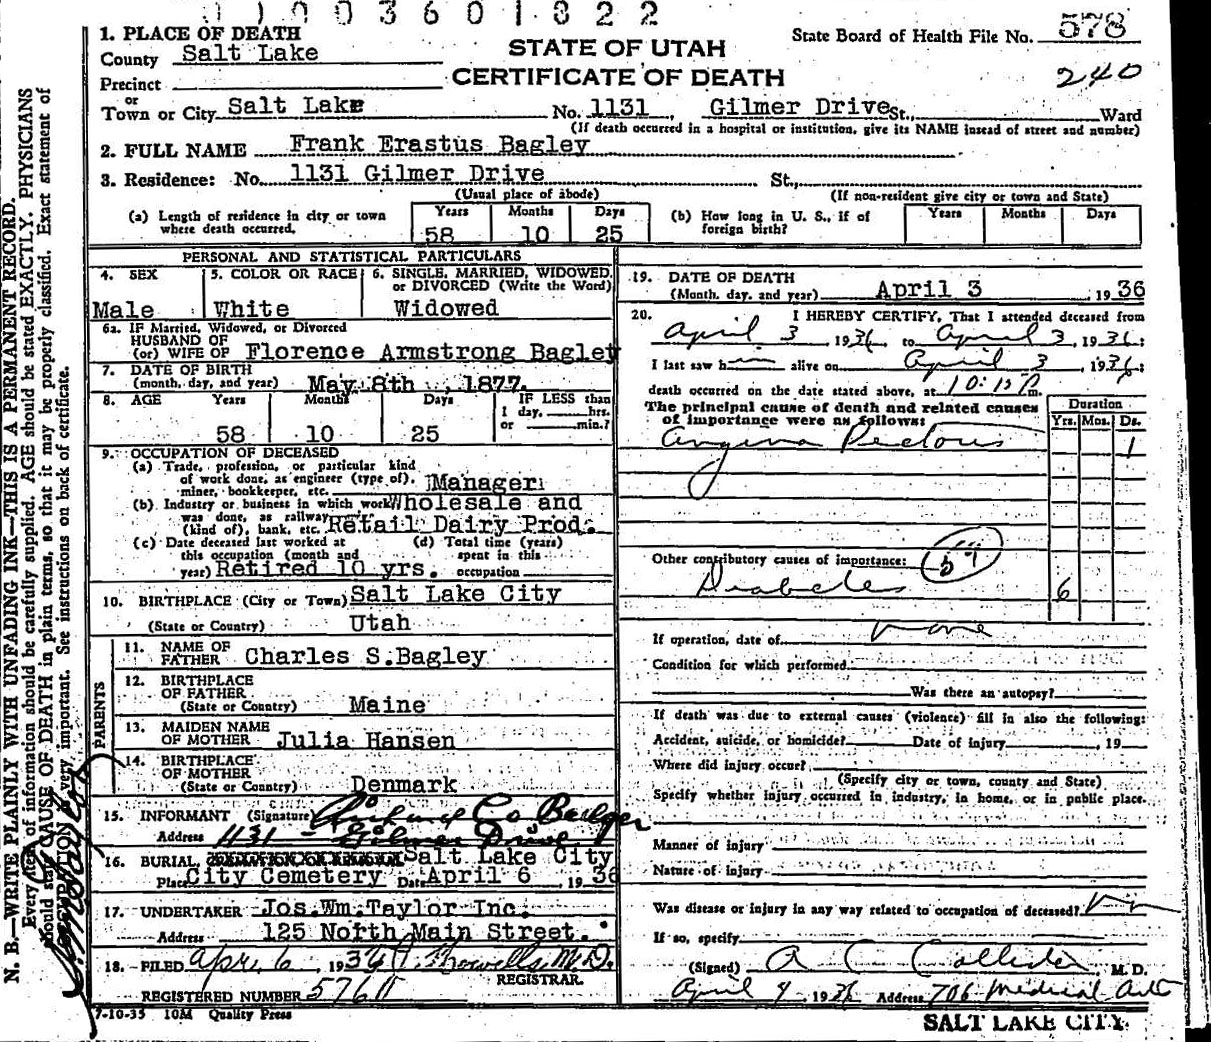 003601822
1. PLACE OF DEATH
STATE OF UTAH
CERTIFICATE OF DEATH
State Board of Health File No. 578
240
County Salt Lake
Precinct
or
Town or City Salt Lake No. 1131, Gilmer Drive St., Ward
(If death occurred in a hospital or institution, give its NAME instead of street and number)
2. FULL NAME Frank Erastus Bagley
3. Residence: No. 1131 Gilmer Drive St.,
(Usual place of abode) (If non-resident give city or town and State)
(a) Length of residence in city or town where death occurred. Years 58 Months 10 Days 25
(b) How long in U. S., if of foreign birth? Years Months Days
PERSONAL AND STATISTICAL PARTICULARS
4. SEX Male
5. COLOR OR RACE White
6. SINGLE, MARRIED, WIDOWED, or DIVORCED (Write the Word) Widowed
6a. IF Married, Widowed, or Divorced
HUSBAND OF
(or) WIFE OF Florence Armstrong Bagley
7. DATE OF BIRTH
(month, day, and year) May 8th, 1877.
8. AGE Years 58 Months 10 Days 25
IF LESS than
1 day, hrs.
or min.?
9. OCCUPATION OF DECEASED
(a) Trade, profession, or particular kind
of work done, as engineer (type of), Manager
miner, bookkeeper, etc.
(b) Industry or business in which work Wholesale and
was done, as railway
(kind of), bank, etc. Retail Dairy Prod.
(c) Date deceased last worked at
this occupation (month and
year) Retired 10 yrs.
(d) Total time (years)
spent in this
occupation
10. BIRTHPLACE (City or Town) Salt Lake City
(State or Country) Utah
PARENTS
11. NAME OF
FATHER Charles S.Bagley
12. BIRTHPLACE
OF FATHER
(State or Country) Maine
13. MAIDEN NAME
OF MOTHER Julia Hansen
14. BIRTHPLACE
OF MOTHER
(State or Country) Denmark
15. INFORMANT (Signature)
Address 1131 - Gilmer Drive
16. BURIAL, Salt Lake City
Place City Cemetery Date April 6, 1936
17. UNDERTAKER Jos.Wm.Taylor Inc.
Address 125 North Main Street.
18. FILED Apr. 6, 1936 M.D.
REGISTRAR.
REGISTERED NUMBER
7-10-35 10M Quality Press
19. DATE OF DEATH
(Month, day, and year) April 3, 1936
20. I HEREBY CERTIFY, That I attended deceased from
April 3 1936 to April 3, 1936:
I last saw h alive on April 3, 1936;
death occurred on the date stated above, at 10:15 P m.
The principal cause of death and related causes
of importance were as follows:
Duration
Yrs. Mos. Ds.
Angina Pectoris 1
Other contributory causes of importance:
Diabetes 6
If operation, date of none
Condition for which performed
Was there an autopsy?
If death was due to external causes (violence) fill in also the following:
Accident, suicide, or homicide? Date of injury , 19
Where did injury occur?
(Specify city or town, county and State)
Specify whether injury occurred in industry, in home, or in public place.
Manner of injury
Nature of injury
Was disease or injury in any way related to occupation of deceased?
If so, specify
(Signed) A C Callister, M. D.
April 4, 1936 Address 706 Medical Arts
SALT LAKE CITY.
N. B.—WRITE PLAINLY WITH UNFADING INK—THIS IS A PERMANENT RECORD.
Every item of information should be carefully supplied. AGE should be stated EXACTLY. PHYSICIANS
should state CAUSE OF DEATH in plain terms, so that it may be properly classified. Exact statement of
OCCUPATION is very important. See instructions on back of certificate.